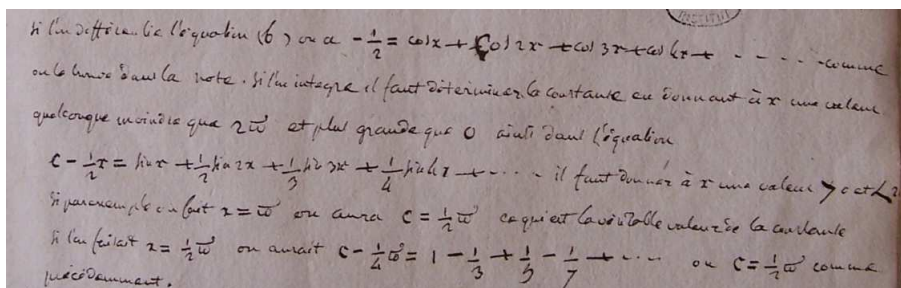 INSTITUT
Si l'on différentie l'équation (b) on a - 1/2 = cos x + cos 2x + cos 3x + cos 4x + - - - - - comme
on le trouve dans la note. Si l'on integre il faut déterminer la constante en donnant à x une valeur
quelconque moindre que 2ϖ et plus grande que 0 ainsi dans l'équation
C - 1/2 x = sin x + 1/2 sin 2x + 1/3 sin 3x + 1/4 sin 4x + - - - - il faut donner à x une valeur > 0 et < 2
Si par exemple on fait x = ϖ on aura C = 1/2 ϖ ce qui est la véritable valeur de la constante
Si l'on faisait x = 1/2 ϖ on aurait C - 1/4 ϖ = 1 - 1/3 + 1/5 - 1/7 + - - - ou C = 1/2 ϖ comme
précédemment.